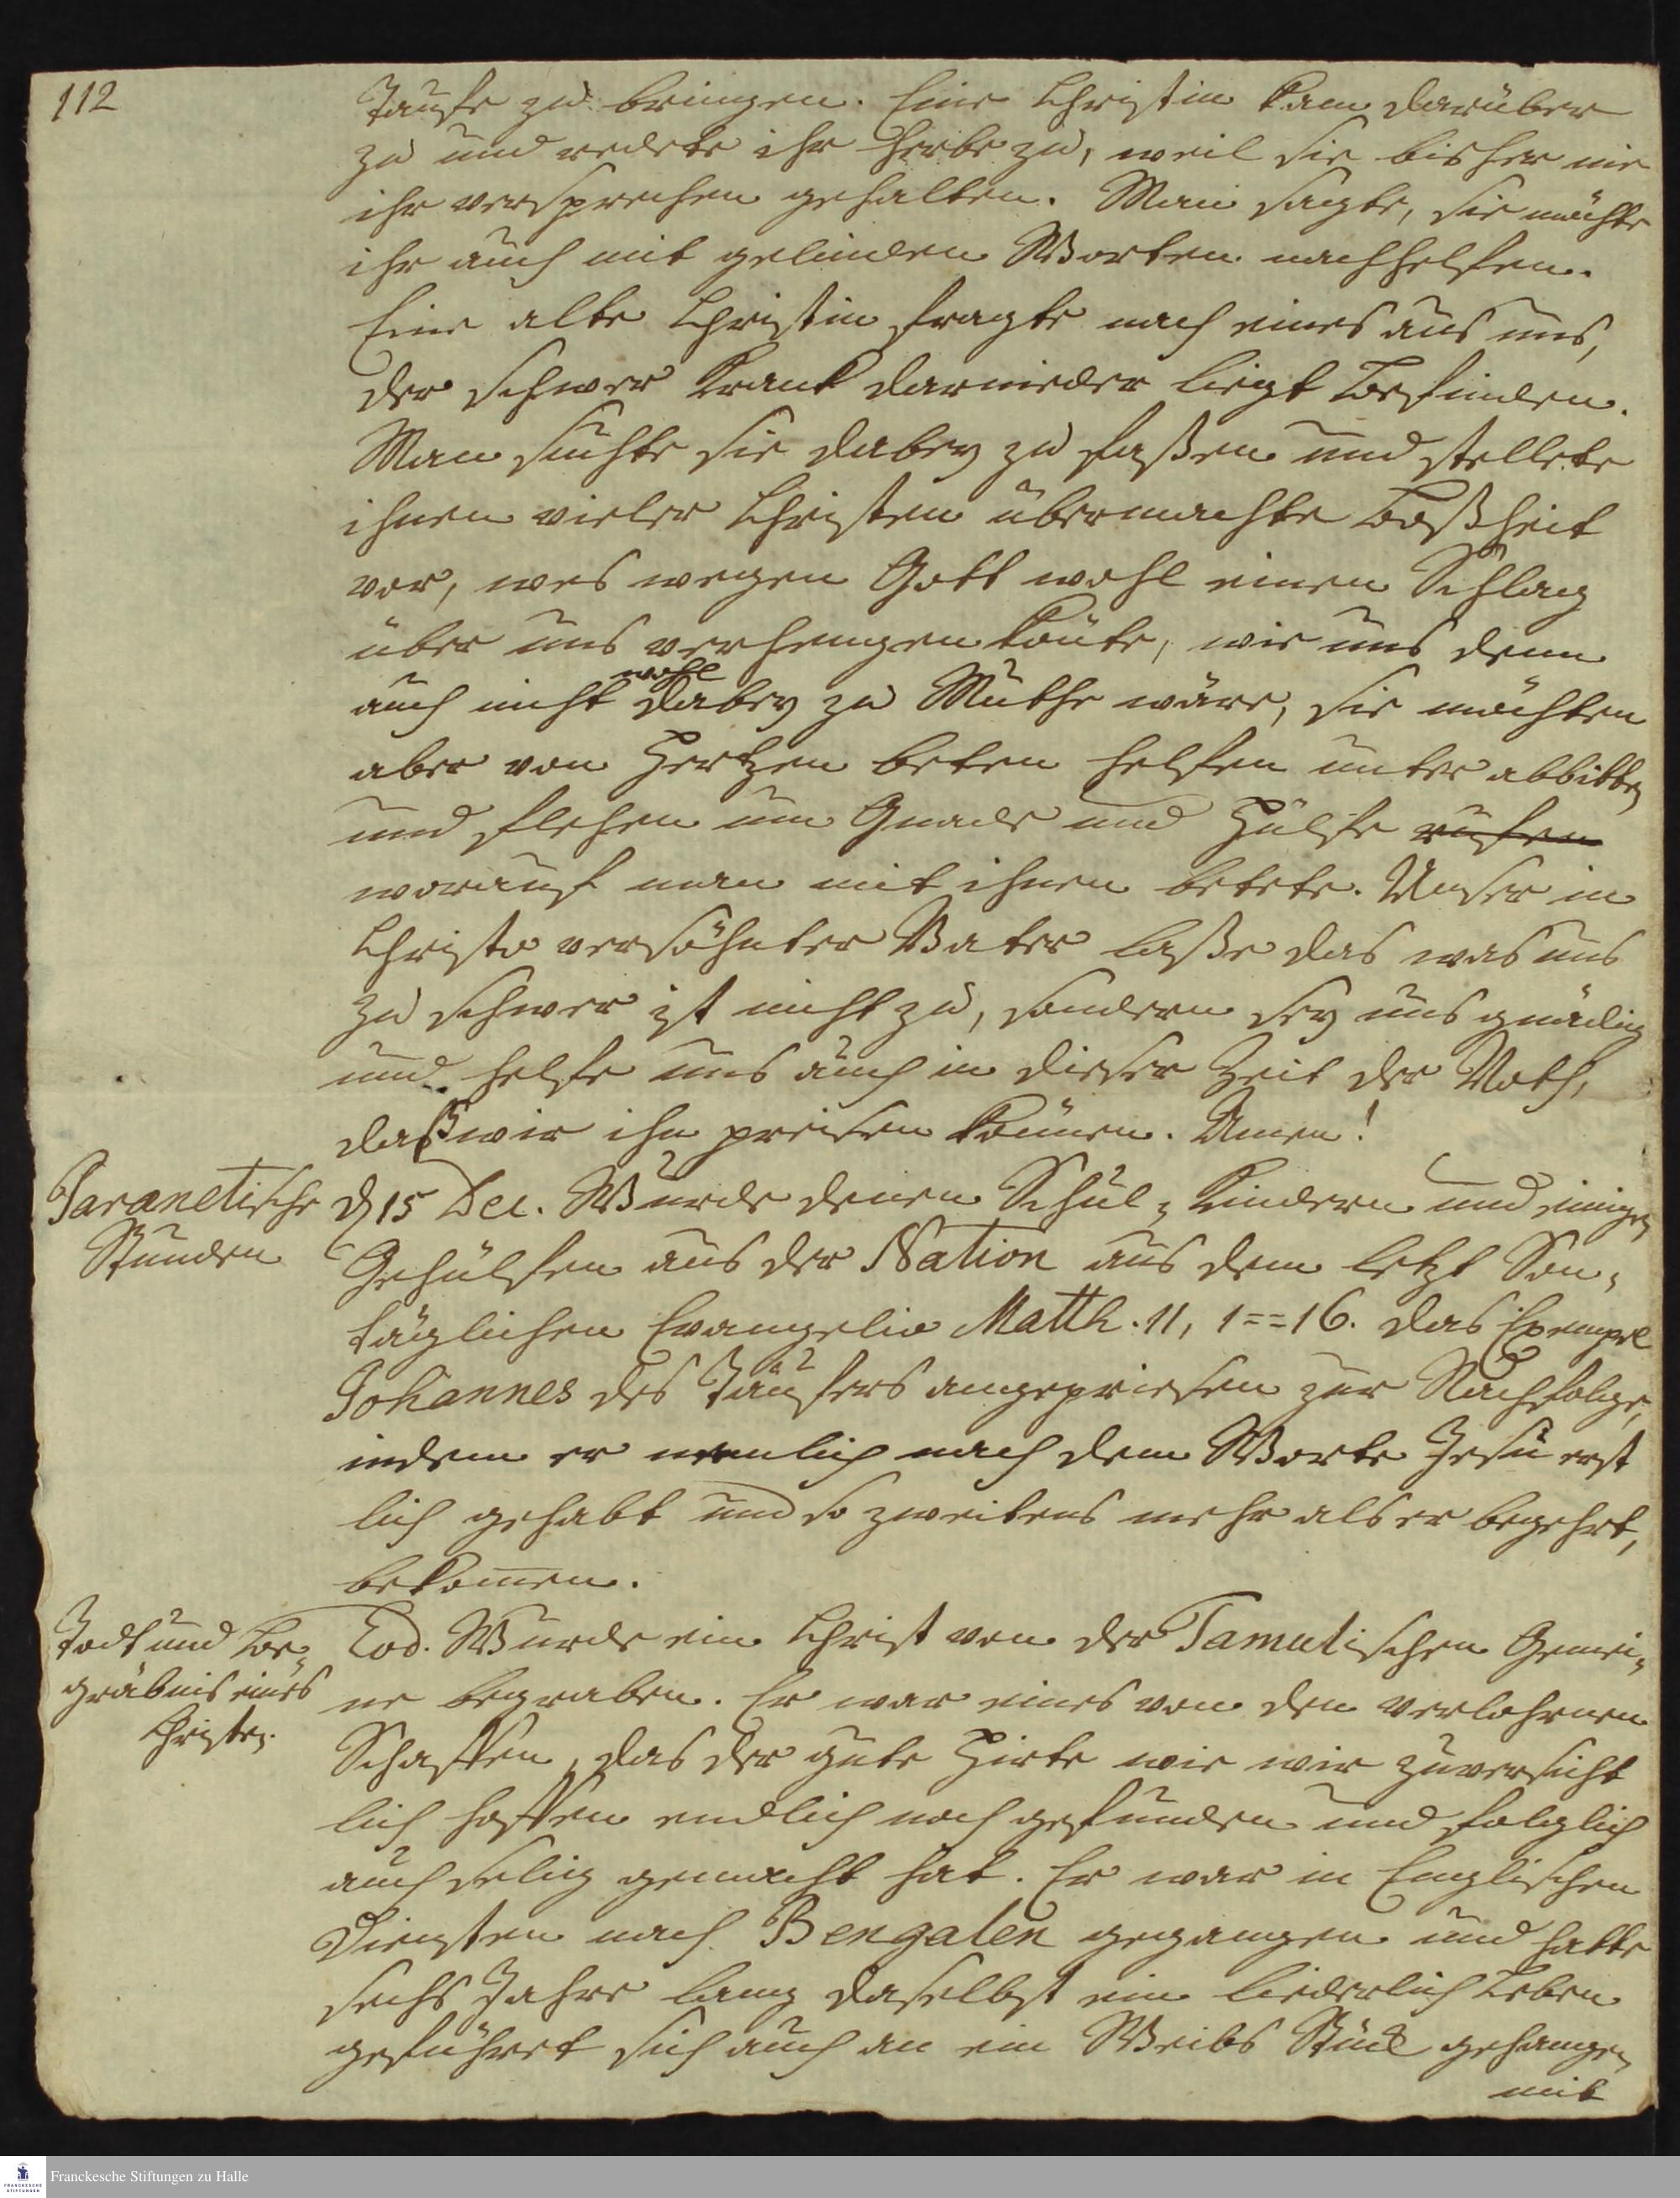 112
Taufe zu bringen. Eine Christin kam darüber
zu und redete ihr herbe zu, weil sie bisher nie
ihr versprechen gehalten. Man sagte, sie möchte
ihr auch mit gelinden Worten nachhelfen.
Eine alte Christin fragte nach eines aus uns,
der schwer kranck darnieder liegt Befinden.
Man suchte sie dabey zu faßen und stellete
ihnen vieler Christen übermachte Boßheit
vor, wes wegen Gott wohl einen Schlag
über uns verhengen könte, wie uns denn
wohl
auch nicht dabey zu Muthe wäre, sie möchten
aber von Hertzen beten helfen unter abbitten
und flehen um Gnade und Hülfe rufen
worauf man mit ihnen betete. Unser in
Christo versöhnter Vater laße das was uns
zu schwer ist nicht zu, sondern sey uns gnädig
und helfe uns auch in dieser Zeit der Noth,
daß wir ihn preisen können. Amen!
Paranetische
Stunden
d 15 Dec. Wurde denen Schul- Kindern und einigen
Gehülfen aus der Nation aus dem letzt Son-
täglichen Evangelio Matth. 11, 1==16. das Exempel
Johannes des Täufers angepriesen zur Nachfolge,
indem er nemlich nach dem Worte Jesu erst
lich gehabt und so zweitens mehr als er begehrt,
bekom̄en.
Todt und Be-
gräbnis eines
Christen.
Eod. Wurde ein Christ von der Tamulischen Gemei-
ne begraben. Er war eines von den verlohrnen
Schaffen, das der gute Hirte wie wir zuversicht
lich hoffen endlich noch gefunden und folglich
auch selig gemacht hat. Er war in Englischen
Diensten nach Bengalen gegangen und hatte
sechs Jahre lang daselbst ein liederlich Leben
geführet sich auch an ein Weibs Stück gehangen
mit
Franckesche Stiftungen zu Halle